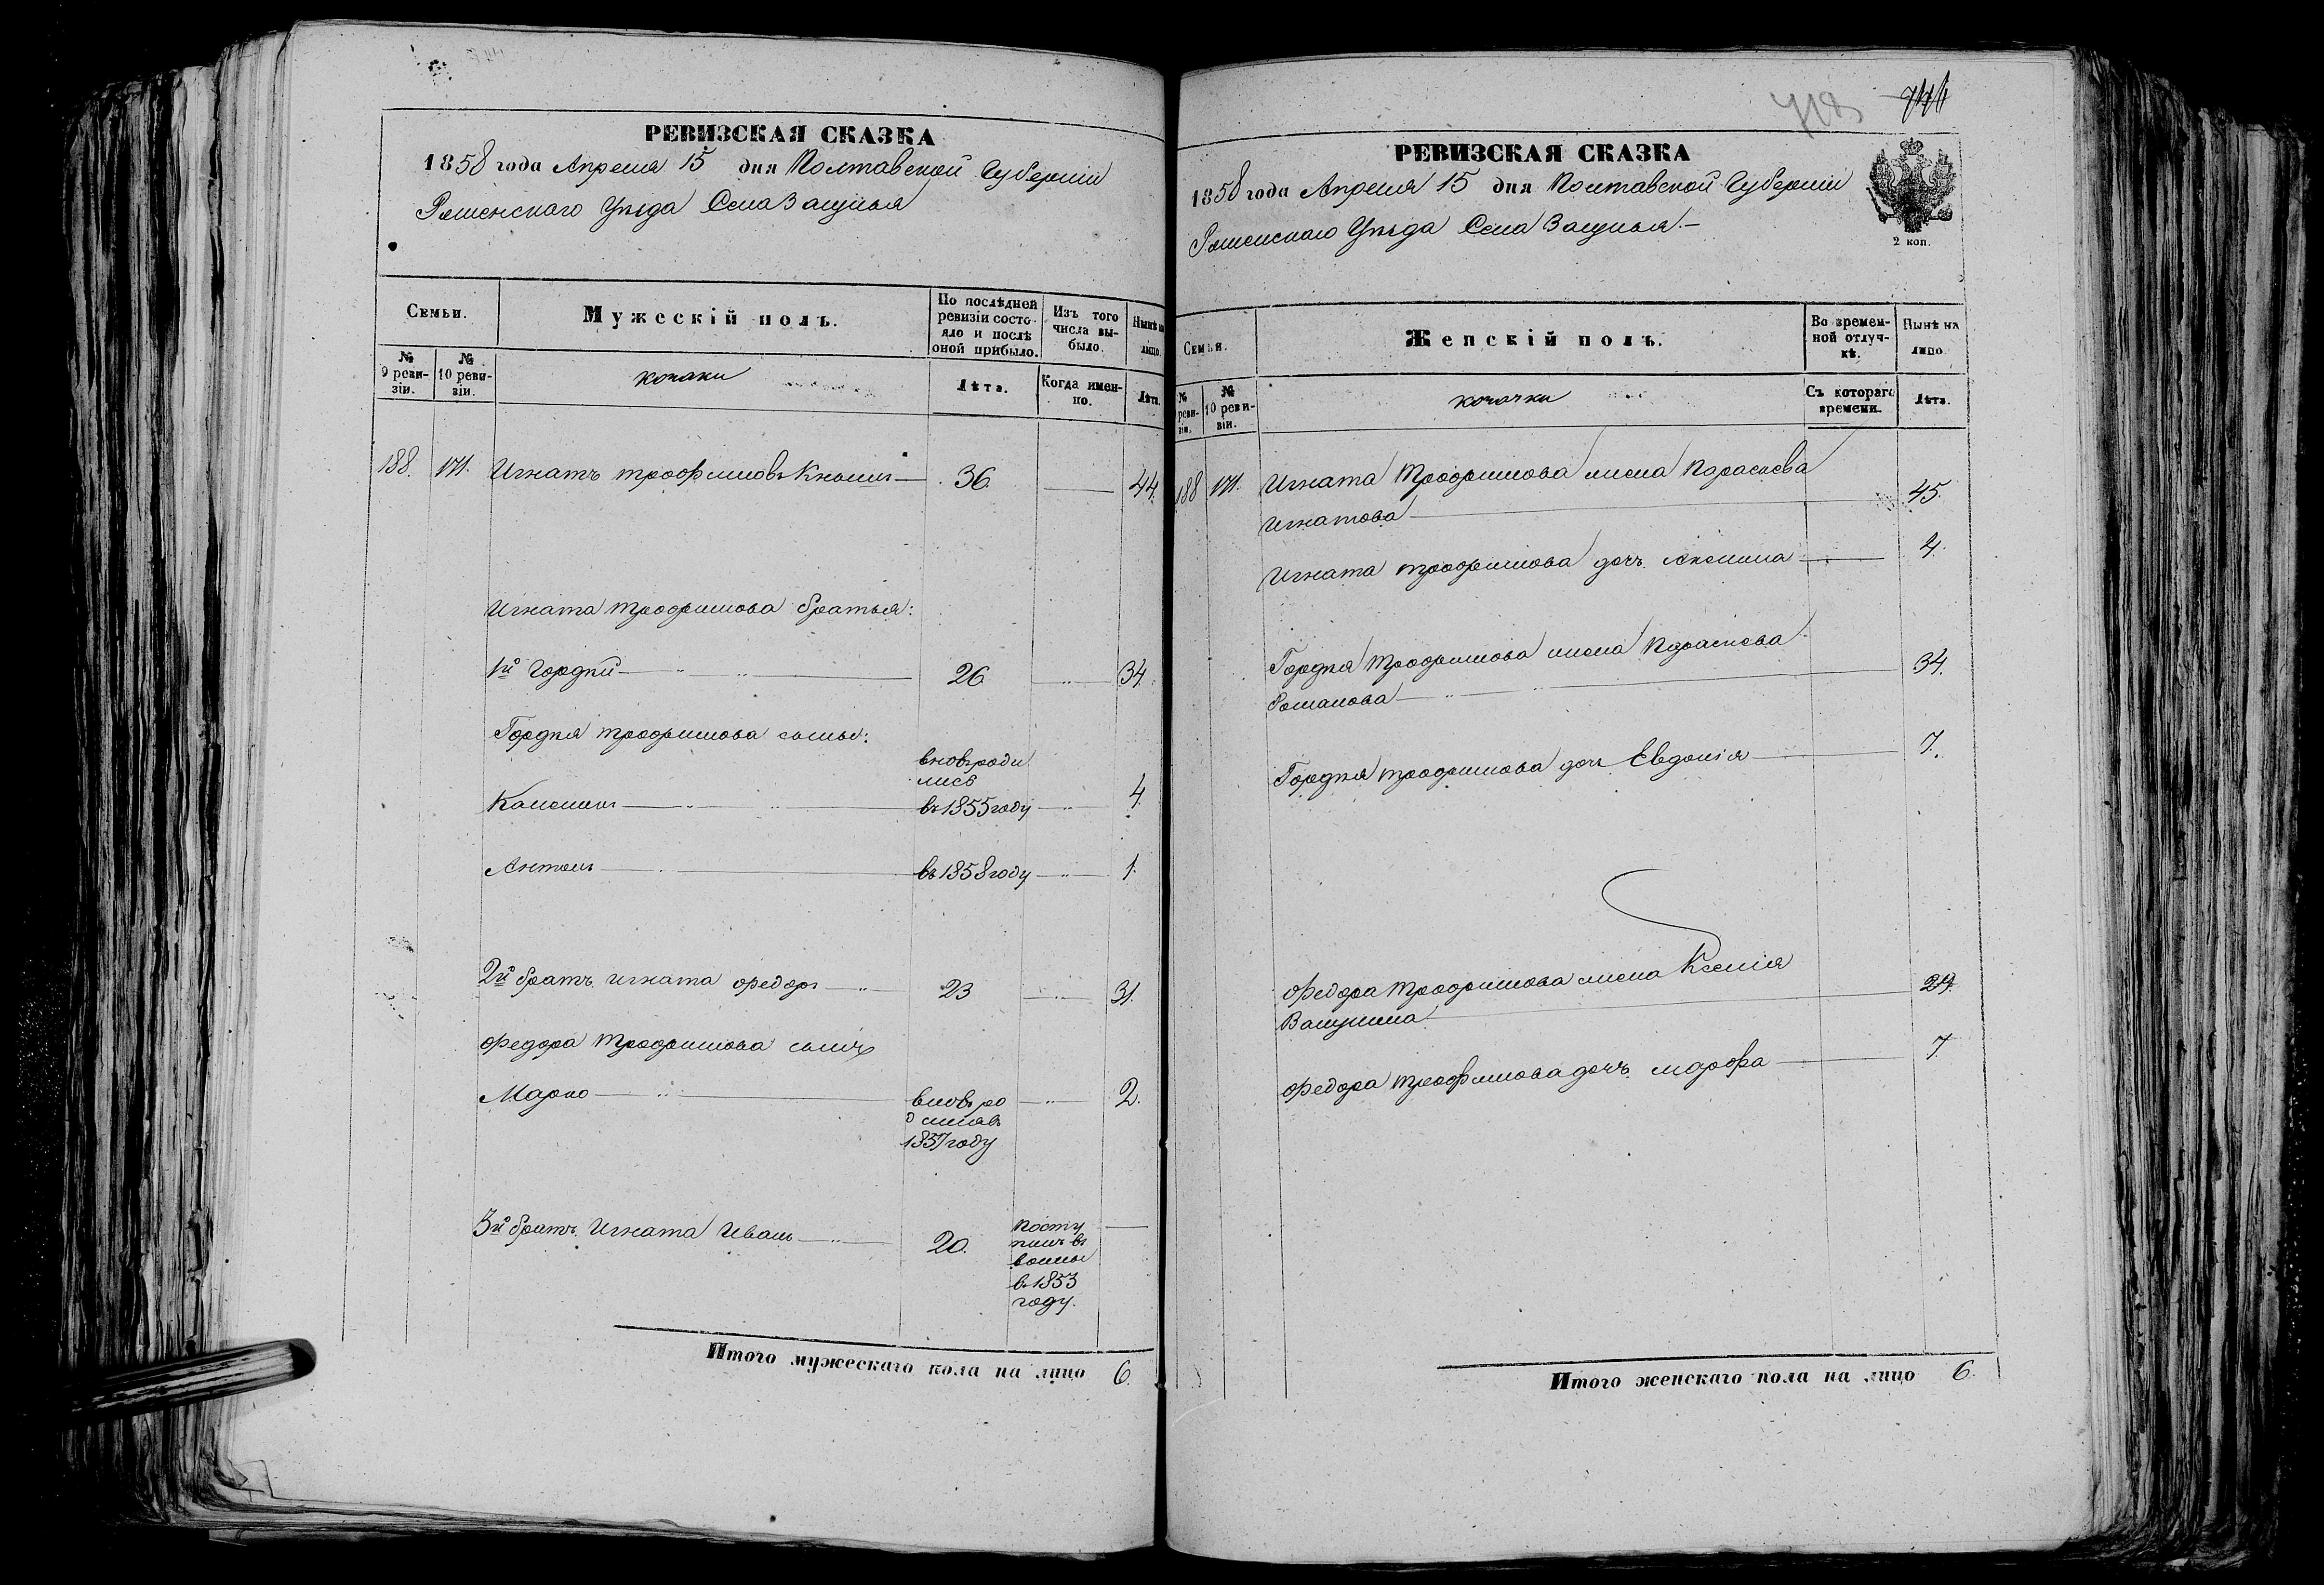 РЕВИЗСКАЯ СКАЗКА
1858 года Апреля 15 дня Полтавской Губернии
Роменского Уезда Села Защилья
Семьи.
Мужескій полъ.
По послѣдней ревизіи состояло и послѣ оной прибыло.
Изъ того числа выбыло.
Нынѣ на лицо.
№ 9 ревизіи.
№ 10 ревизіи.
козаки
Лѣта.
Когда именно.
Лѣта.
188. 171. Игнатъ трофимовъ Кнышъ 36. 44.
Игната трофимова братья:
1й Гордѣй 26 34.
Гордѣя трофимова сыны:
вновь роди
лись
Калениκъ въ 1855 году 4.
Антонъ въ 1858 году 1.
2й братъ игната Федоръ 23 31.
Федора трофимова сынъ
Марко вновь ро 2.
дился въ
1857 году
3й братъ Игната Иванъ 20. посту
пилъ въ
воины
в 1853
году.
Итого мужескаго пола на лицо 6.
718 746
РЕВИЗСКАЯ СКАЗКА
1858 года Апреля 15 дня Полтавской Губернии
Роменскаго Уезда Села Защилья.
2 коп.
Семьи.
Женскій полъ.
Во временной отлучкѣ.
Нынѣ на лицо.
№ ревизіи.
№ 10 ревизіи.
козачки
Съ котораго времени.
Лѣта.
188 171. Игната Трофимова жена Параскева
Игнатова 45.
Игната трофимова дочъ Акелина 4.
Гордѣя трофимова жена Параскева
Романова 34.
Гордѣя трофимова дочъ Евдокія 7.
Федора трофимова жена Ксенія
Вакулина 29.
Федора трофимова дочъ марфа 7
Итого женскаго пола на лицо 6.